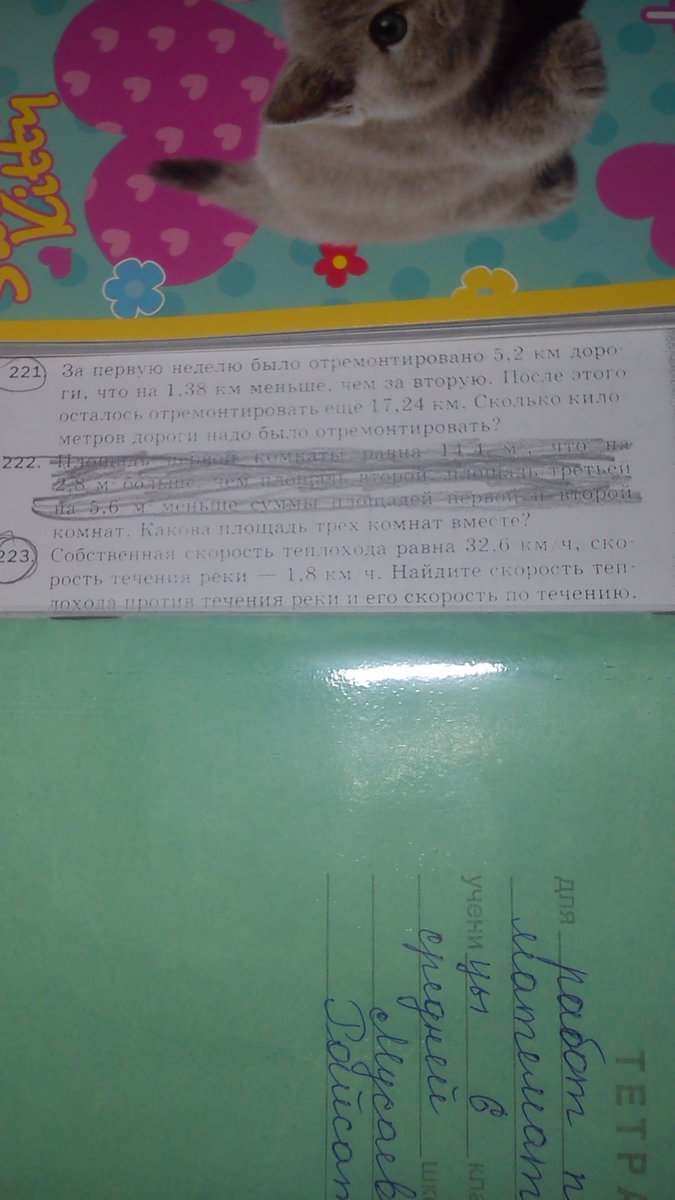 Kitty
221 За первую неделю было отремонтировано 5,2 км доро-
ги, что на 1,38 км меньше, чем за вторую. После этого
осталось отремонтировать еще 17,24 км. Сколько кило
метров дороги надо было отремонтировать?
222. Площадь первой комнаты равна 14,4 м², что на
2,8 м² больше, чем площадь второй, площадь третьей
на 5,6 м² меньше суммы площадей первой и второй
комнат. Какова площадь трех комнат вместе?
223 Собственная скорость теплохода равна 32,6 км/ч, ско-
рость течения реки — 1,8 км/ч. Найдите скорость теп-
лохода против течения реки и его скорость по течению.
ТЕТРА
для работ п
математ
учени цы 6 кла
средней шко
Мусаев